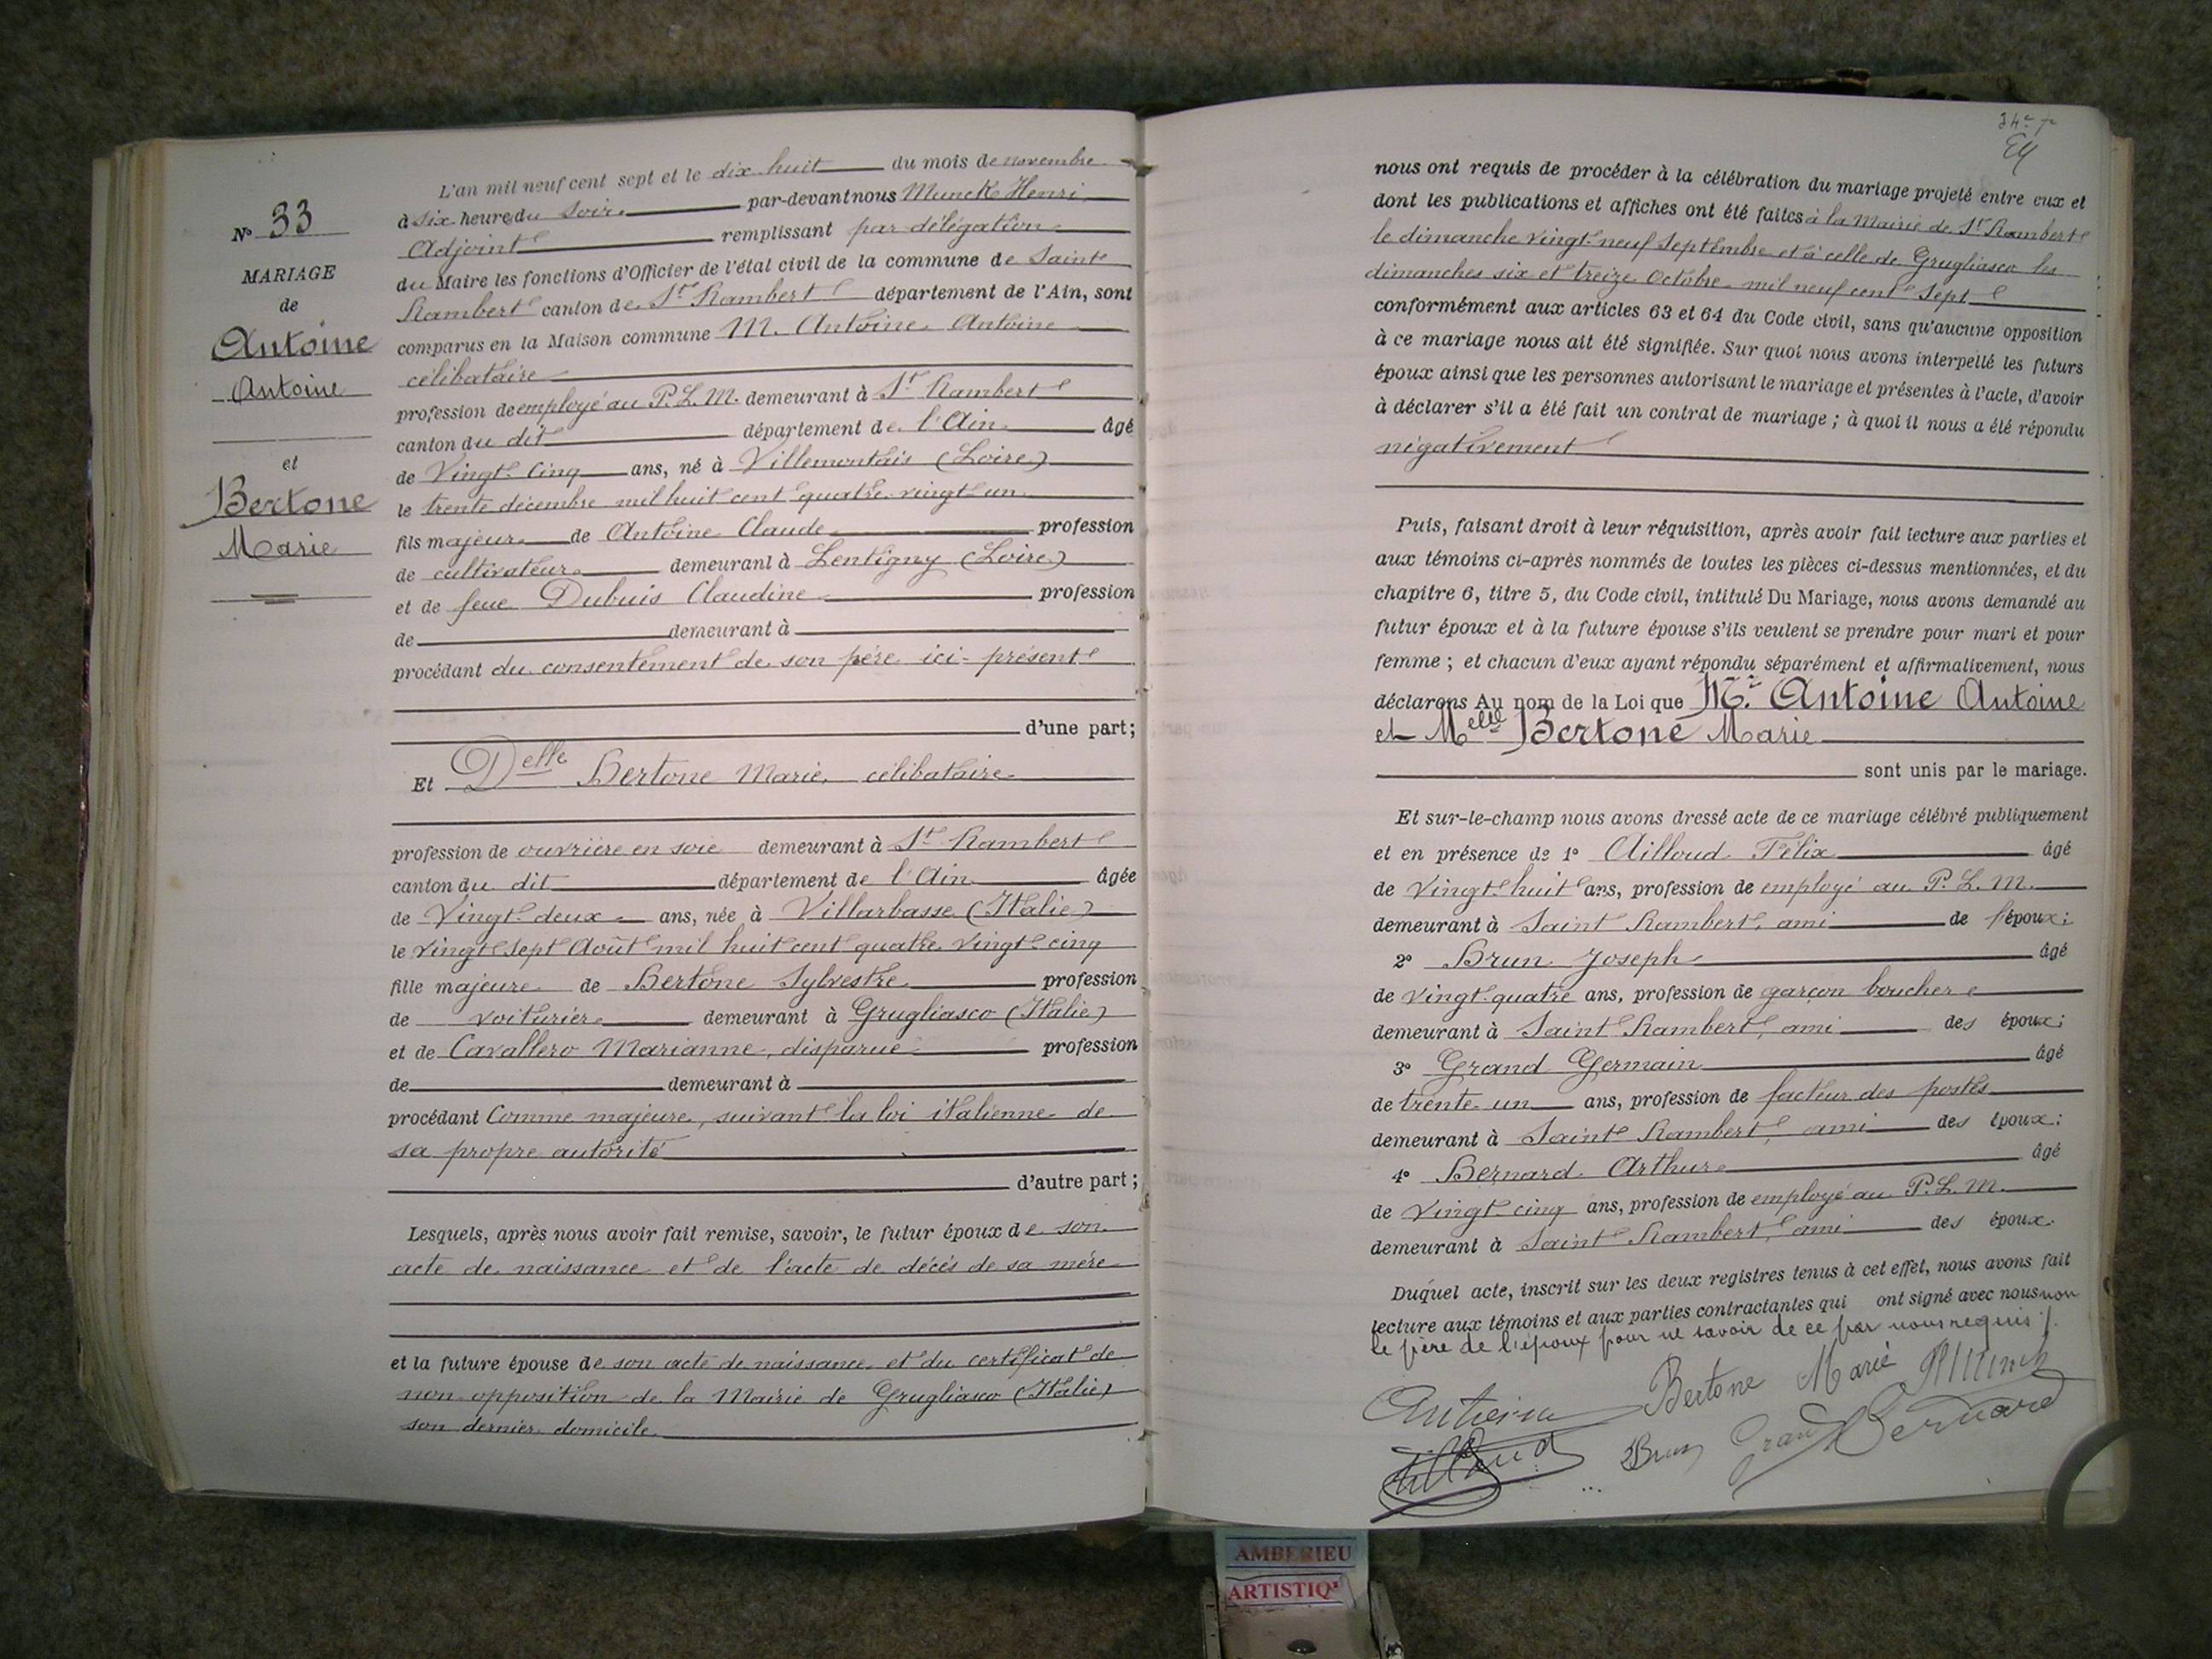 N° 33
MARIAGE
de
Antoine
Antoine
et
Bertone
Marie
L'an mil neuf cent sept et le dix huit du mois de novembre
à six heure du soir par-devant nous Munck Henri
Adjoint remplissant par délégation
du Maire les fonctions d'Officier de l'état civil de la commune de Saint
Rambert canton de St Rambert département de l'Ain, sont
comparus en la Maison commune M. Antoine Antoine
célibataire
profession de employé au P.L.M. demeurant à St Rambert
canton du dit département de l'Ain âgé
de Vingt-cinq ans, né à Villemontais (Loire)
le trente décembre mil huit cent quatre vingt un
fils majeur de Antoine Claude profession
de cultivateur demeurant à Lentigny (Loire)
et de feue Dubuis Claudine profession
de demeurant à
procédant du consentement de son père ici-présent
d'une part;
Et Delle Bertone Marie, célibataire
profession de ouvrière en soie demeurant à St Rambert
canton du dit département de l'Ain âgée
de Vingt-deux ans, née à Villarbasse (Italie)
le vingt sept Août mil huit cent quatre vingt cinq
fille majeure de Bertone Sylvestre profession
de voiturier demeurant à Grugliasco (Italie)
et de Cavallero Marianne, disparue profession
de demeurant à
procédant Comme majeure, suivant la loi italienne de
sa propre autorité
d'autre part;
Lesquels, après nous avoir fait remise, savoir, le futur époux de son
acte de naissance et de l'acte de décès de sa mère
et la future épouse de son acte de naissance et du certificat de
non opposition de la Mairie de Grugliasco (Italie)
son dernier domicile
nous ont requis de procéder à la célébration du mariage projeté entre eux et
dont les publications et affiches ont été faites à la Mairie de St Rambert
le dimanche vingt-neuf Septembre et à celle de Grugliasco les
dimanches six et treize Octobre mil neuf cent sept
conformément aux articles 63 et 64 du Code civil, sans qu'aucune opposition
à ce mariage nous ait été signifiée. Sur quoi nous avons interpellé les futurs
époux ainsi que les personnes autorisant le mariage et présentes à l'acte, d'avoir
à déclarer s'il a été fait un contrat de mariage; à quoi il nous a été répondu
négativement
Puis, faisant droit à leur réquisition, après avoir fait lecture aux parties et
aux témoins ci-après nommés de toutes les pièces ci-dessus mentionnées, et du
chapitre 6, titre 5, du Code civil, intitulé Du Mariage, nous avons demandé au
futur époux et à la future épouse s'ils veulent se prendre pour mari et pour
femme; et chacun d'eux ayant répondu séparément et affirmativement, nous
déclarons Au nom de la Loi que Mr. Antoine Antoine
et Melle Bertone Marie
sont unis par le mariage.
Et sur-le-champ nous avons dressé acte de ce mariage célébré publiquement
et en présence de 1° Ailloud Félix âgé
de Vingt-huit ans, profession de employé au P.L.M.
demeurant à Saint Rambert, ami de l'époux;
2° Brun Joseph âgé
de vingt-quatre ans, profession de garçon boucher
demeurant à Saint Rambert, ami des époux;
3° Grand Germain âgé
de trente-un ans, profession de facteur des postes
demeurant à Saint Rambert, ami des époux;
4° Bernard Arthur âgé
de Vingt-cinq ans, profession de employé au P.L.M.
demeurant à Saint Rambert, ami des époux.
Duquel acte, inscrit sur les deux registres tenus à cet effet, nous avons fait
lecture aux témoins et aux parties contractantes qui ont signé avec nous non
le père de l'époux pour ne savoir de ce par nous requis /.
Antoine Bertone Marie HMunck
Ailloud Brun Grand Bernard
AMBERIEU
ARTISTIQ